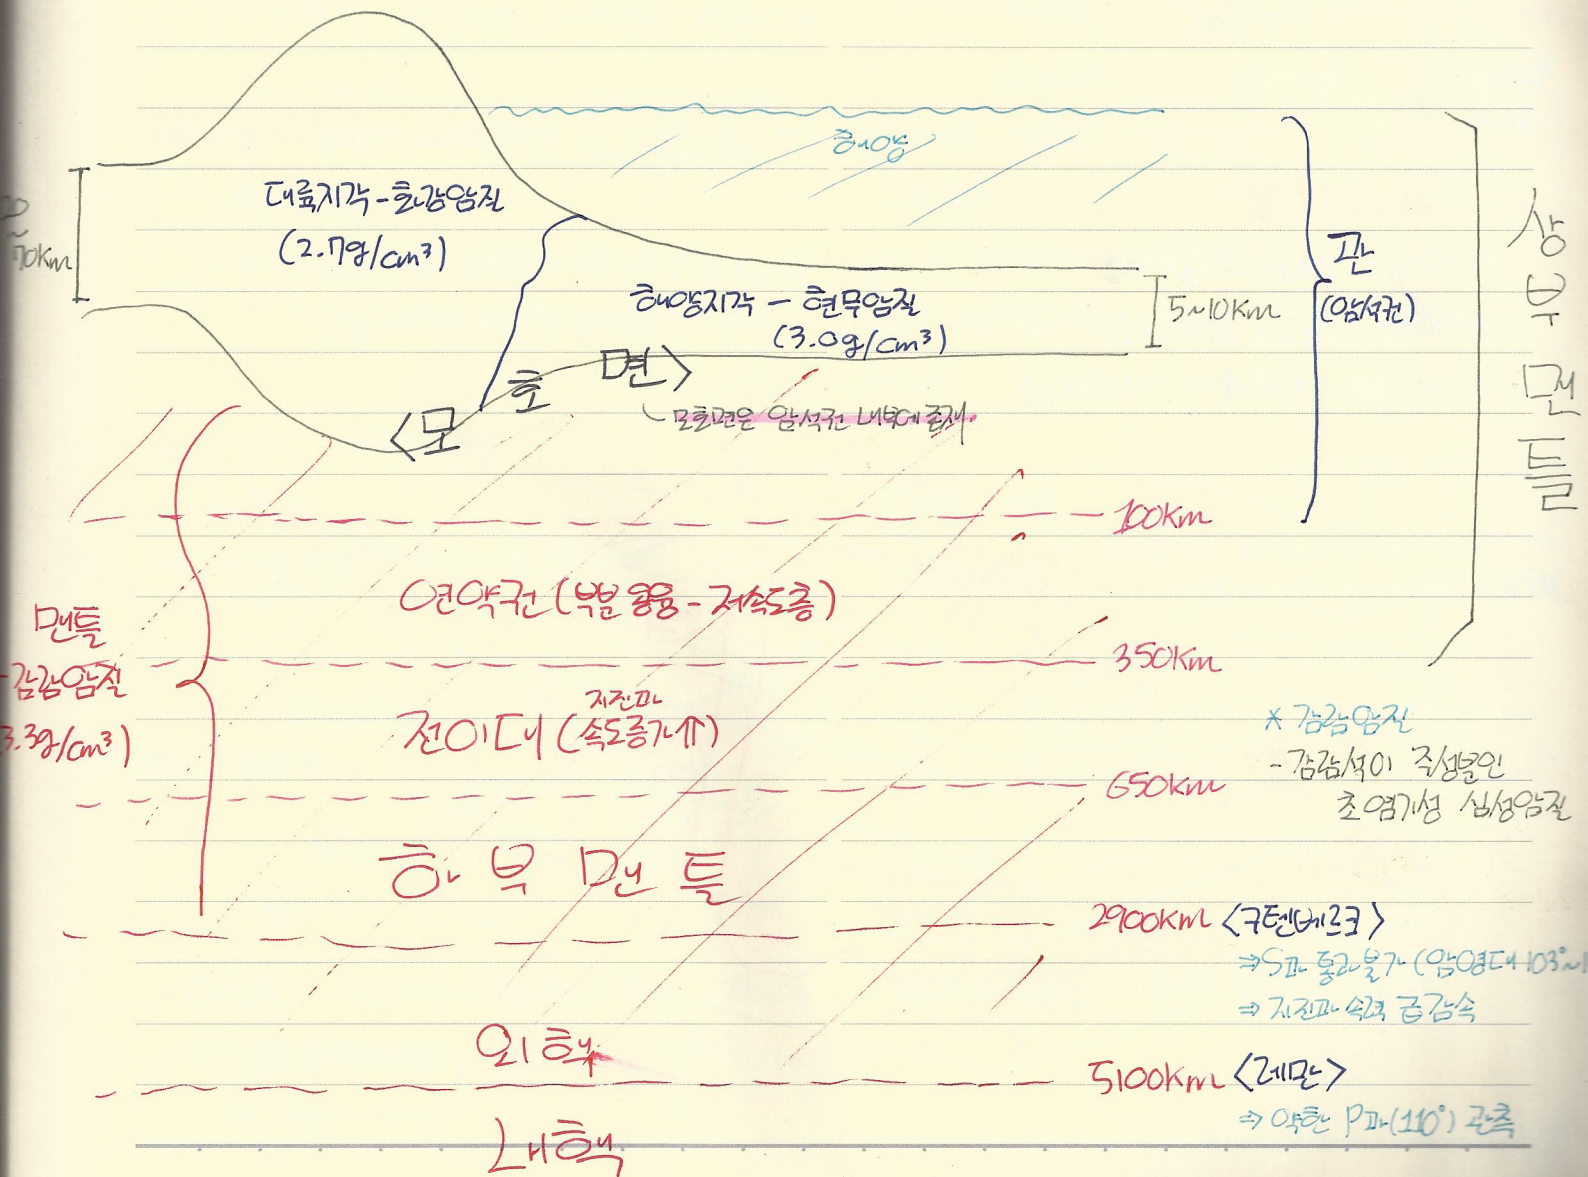 해양
대륙지각-화강암질
(2.7g/cm³)
~
70km
해양지각 - 현무암질
(3.0g/cm³)
5~10km
판
(암석권)
상부맨틀
<모호면>
모호면은 암석권 내부에 존재.
100km
연약권 (부분 용융 - 저속도층)
350km
맨틀
-감람암질
3.3g/cm³)
지진파
전이대 (속도증가↑)
650km
* 감람암질
- 감람석이 주성분인
초염기성 심성암질
하부맨틀
2900km <구텐베르크>
⇒ S파 통과 불가 (암영대 103°~
⇒ 지진파 속력 급감속
외핵
5100km <레만>
⇒ 약한 P파(110°) 관측
내핵